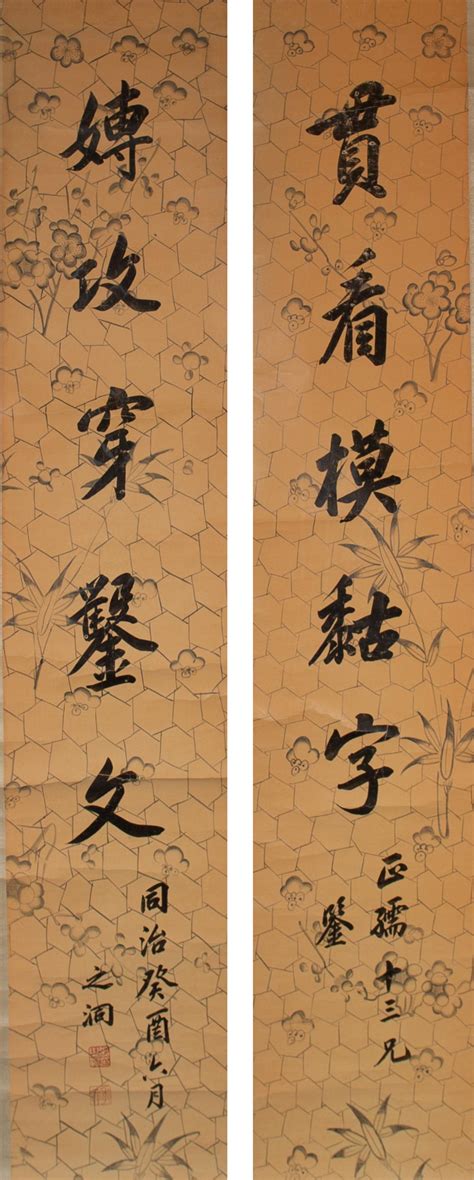 貫看模黏字
正孺十三兄
鑒
嫥攻穿鑿文
同治癸酉六月
之洞